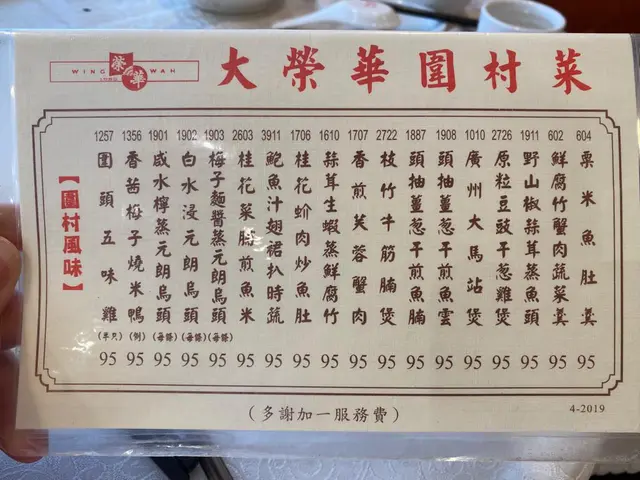 WING WAH
榮華
大榮華圍村菜
【圍村風味】
604 粟米魚肚羹 95
602 鮮腐竹蟹肉蔬菜羹 95
1911 野山椒蒜茸蒸魚頭 95
2726 原粒豆豉干葱雞煲 95
1010 廣州大馬站煲 95
1908 頭抽薑葱干煎魚雲 95
1887 頭抽薑葱干煎魚腩 95
2722 枝竹牛筋腩煲 95
1707 香煎芙蓉蟹肉 95
1610 蒜茸生蝦蒸鮮腐竹 95
1706 桂花蚧肉炒魚肚 95
3911 鮑魚汁翅裙扒時蔬 95
2603 桂花菜脯煎魚米 95
1903 梅子麵醬蒸元朗烏頭 (每條) 95
1902 白水浸元朗烏頭 (每條) 95
1901 咸水檸蒸元朗烏頭 (每條) 95
1356 香茜梅子燒米鴨 (例) 95
1257 圍頭五味雞 (半只) 95
(多謝加一服務費)
4-2019